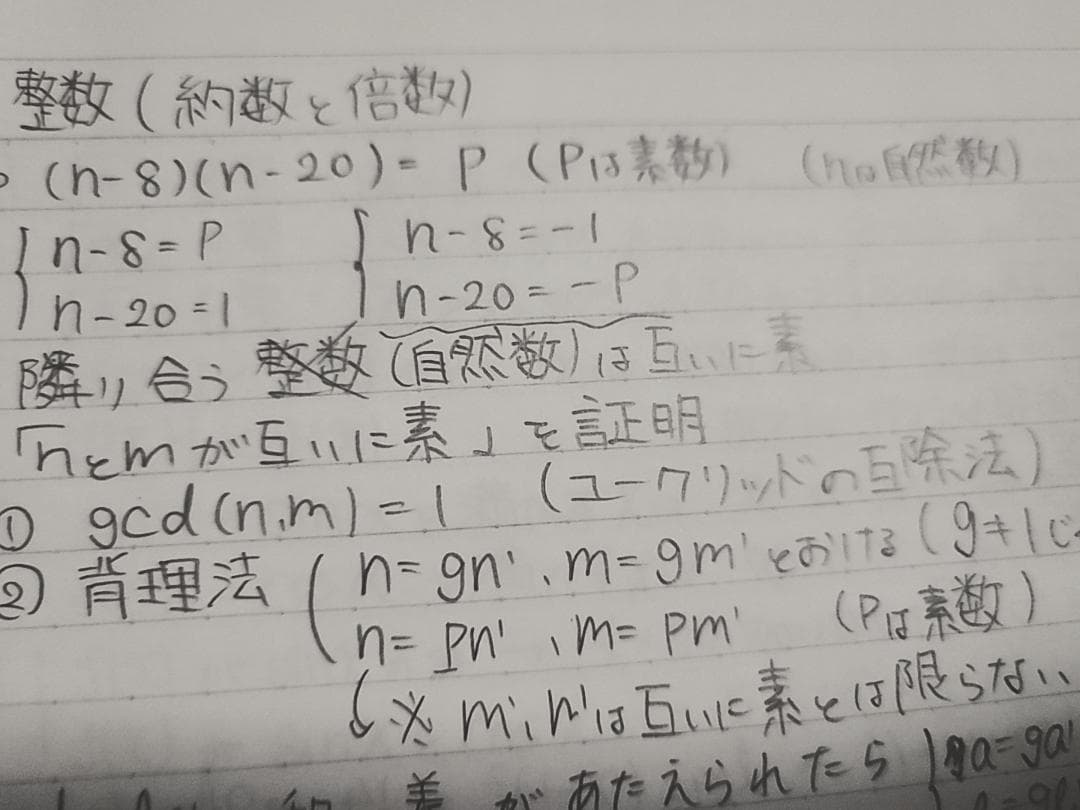 整数(約数と倍数)
(n-8)(n-20)= P (Pは素数) (nは自然数)
{ n-8=P { n-8=-1
n-20=1 n-20=-P
隣り合う整数(自然数)は互いに素
「nとmが互いに素」を証明
① gcd(n,m)=1 (ユークリッドの互除法)
② 背理法 ( n=gn'、m=gm'とおける(g≠1
n=pn'、m=pm' (Pは素数)
※ m',n'は互いに素とは限らない
差があたえられたら a=ga'